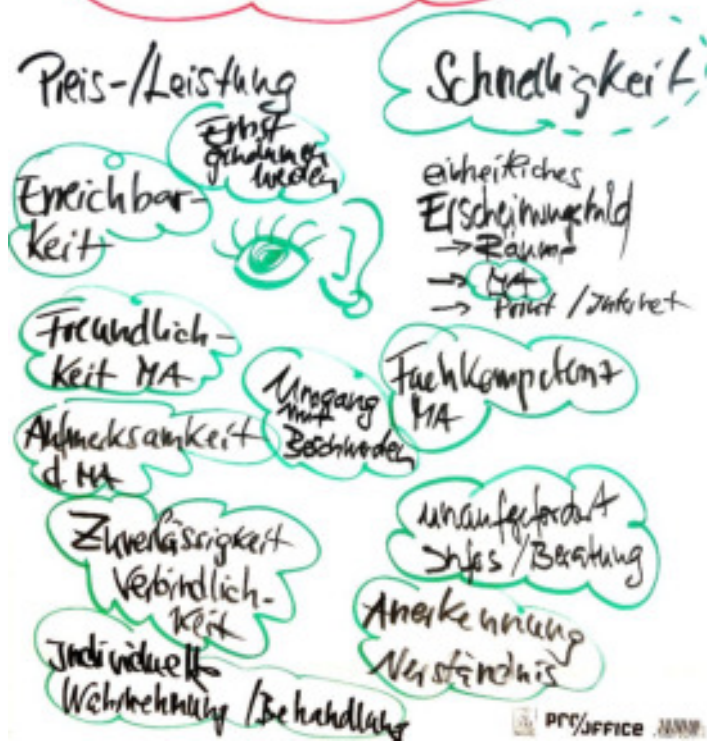 Preis-/Leistung
Schnelligkeit
Ernst
genommen
werden
Erreichbar-
keit
einheitliches
Erscheinungsbild
→ Räume
→ MA
→ Print / Internet
Freundlich-
keit MA
Umgang
mit
Beschwerden
Fachkompetenz
MA
Aufmerksamkeit
d. MA
Zuverlässigkeit
Verbindlich-
keit
unaufgefordert
Infos / Beratung
Anerkennung
Verständnis
Individuelle
Wahrnehmung / Behandlung